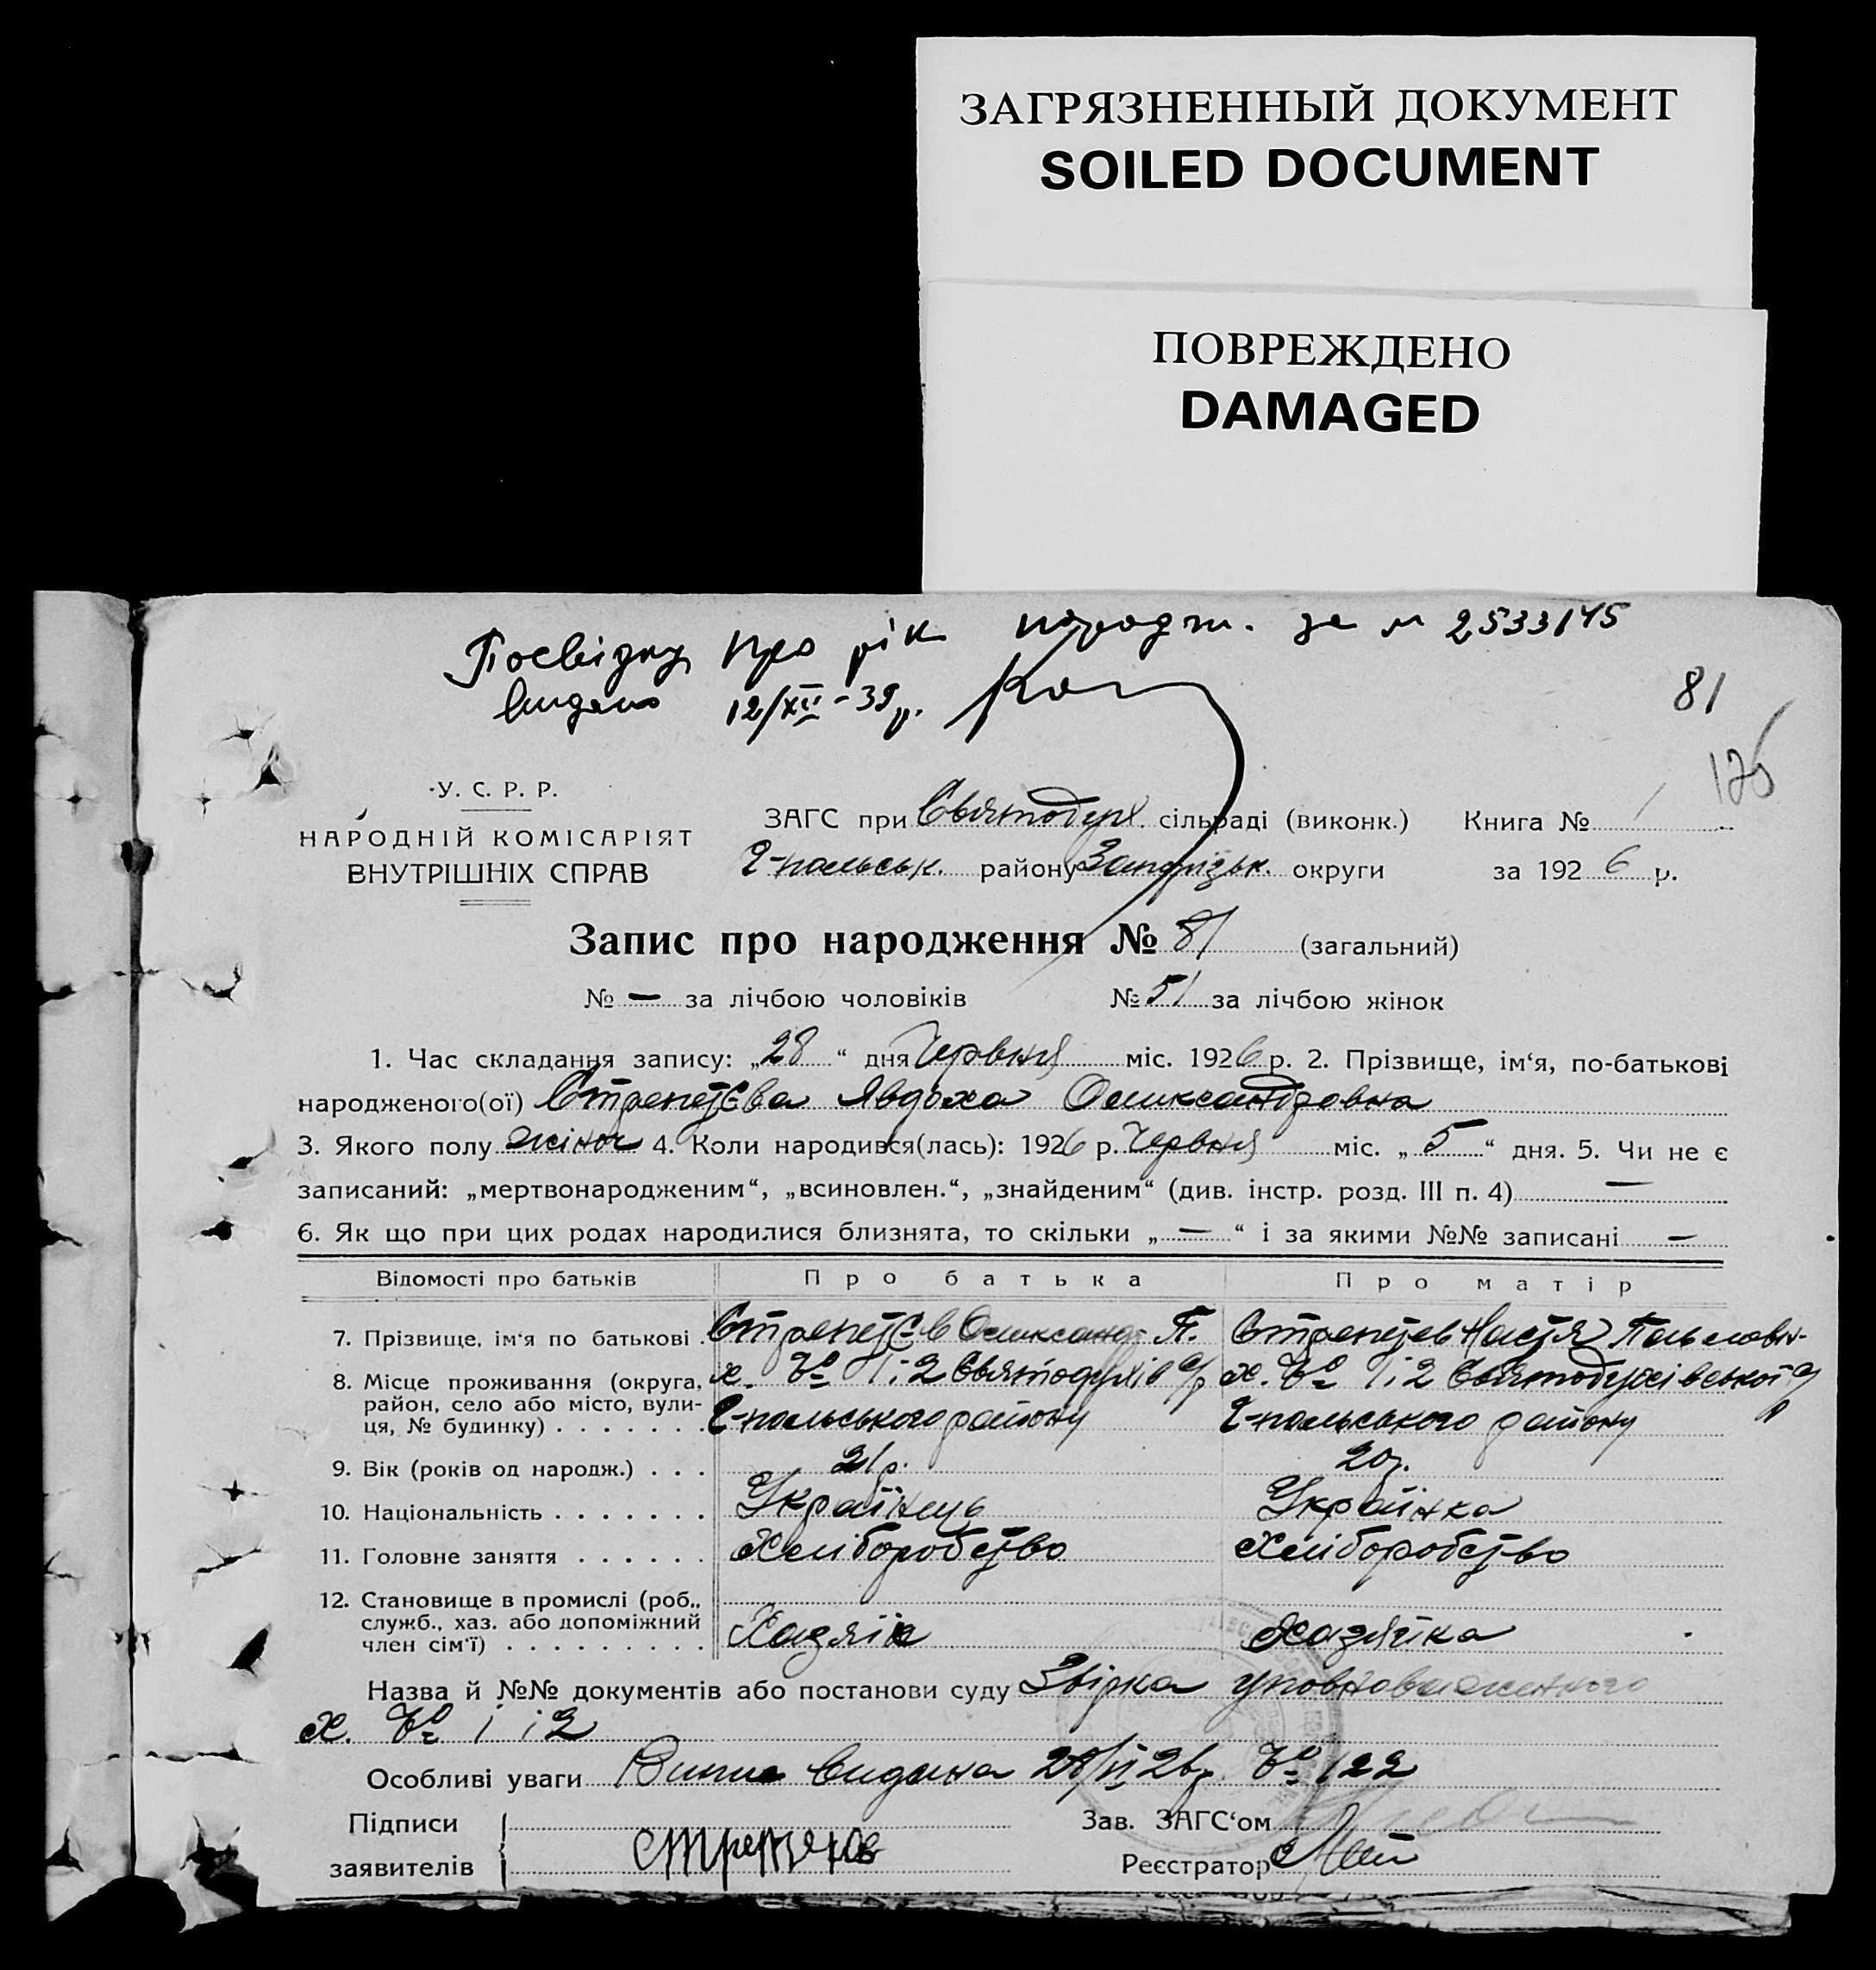 ЗАГРЯЗНЕННЫЙ ДОКУМЕНТ
SOILED DOCUMENT
ПОВРЕЖДЕНО
DAMAGED
Посвідку про рік народж. за № 2533/45
видано 12/XII-39р.
81
125
У. С. Р. Р.
НАРОДНІЙ КОМІСАРІЯТ
ВНУТРІШНІХ СПРАВ
ЗАГС при Святодух. сільраді (виконк.) Книга № 1
Г-польськ. району Запорізьк. округи за 1926 р.
Запис про народження № 81 (загальний)
№ — за лічбою чоловіків № 51 за лічбою жінок
1. Час складання запису: „28“ дня Червня міс. 1926 р. 2. Прізвище, ім‘я, по-батькові
народженого(ої) Явдоха Олександровна
3. Якого полу жіноч 4. Коли народився(лась): 1926 р. Червня міс. „5“ дня. 5. Чи не є
записаний: „мертвонародженим“, „всиновлен.“, „знайденим“ (див. інстр. розд. III п. 4) —
6. Як що при цих родах народилися близнята, то скільки „—“ і за якими №№ записані —
Відомості про батьків Про батька Про матір
7. Прізвище, ім‘я по батькові Олександ. П. Настя
8. Місце проживання (округа, х. № 1 і 2 Святодухів с/р х. № 1 і 2 Святодухівської с/р
район, село або місто, вули-
ця, № будинку) Г-польського району Г-польського району
9. Вік (років од народж.) 21 р. 20 р.
10. Національність Українець Українка
11. Головне заняття Хліборобство Хліборобство
12. Становище в промислі (роб.,
служб., хаз. або допоміжний
член сім‘ї) Хазяїн Хазяйка
Назва й №№ документів або постанови суду Звірка уповноваженого
х. № 1 і 2
Особливі уваги видана № 122
Підписи Зав. ЗАГС‘ом
заявителів Реєстратор